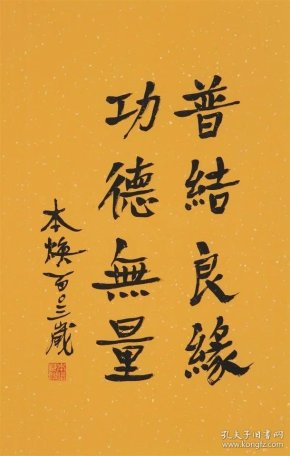 普結良緣
功德無量
本煥一百〇三歲
孔夫子旧书网